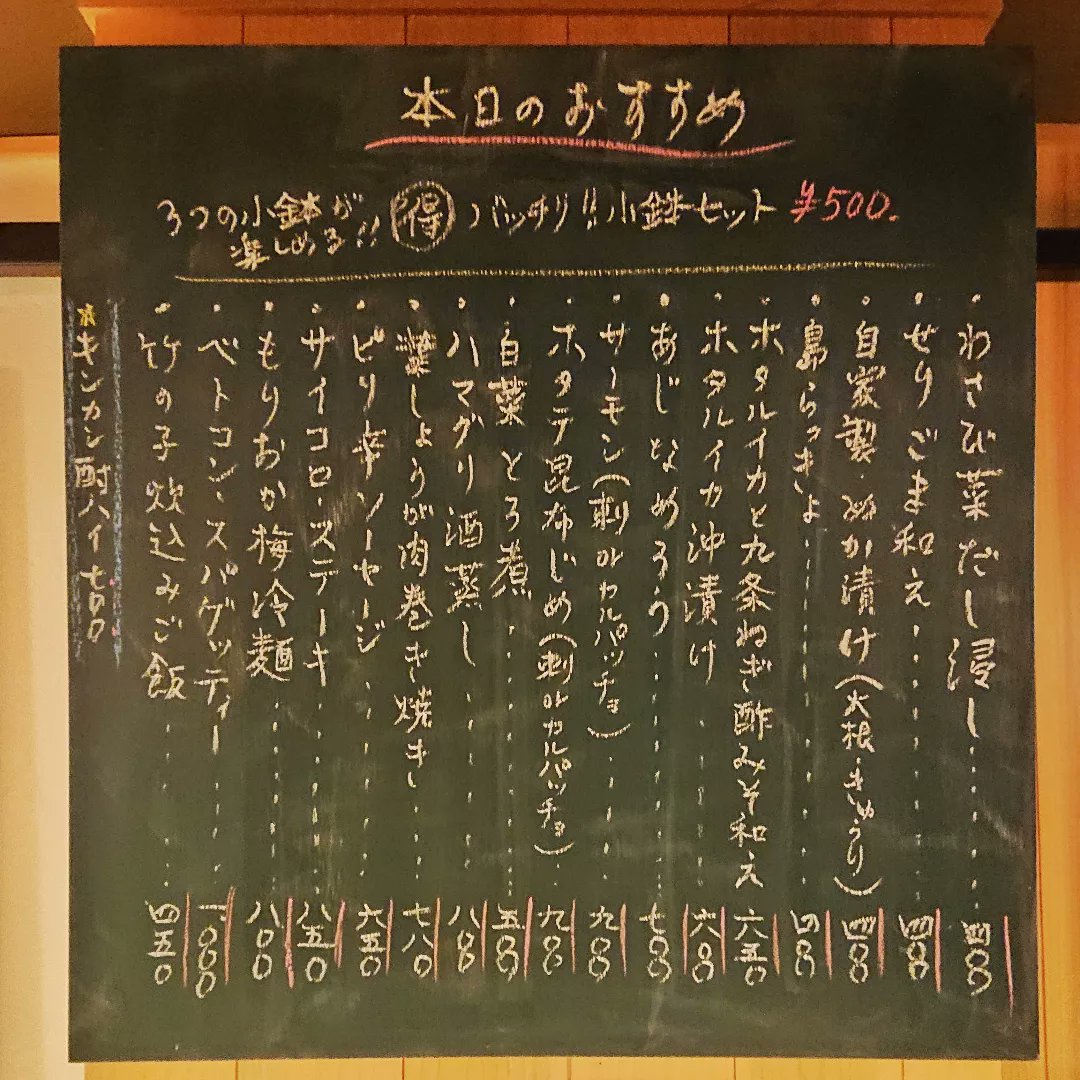 本日のおすすめ
3つの小鉢が
楽しめる!!
得 バッサリ!!小鉢セット ¥500.
・わさび菜だし浸し 四〇〇
・せりごま和え 四〇〇
・自家製・ぬか漬け(大根・きゅうり) 四〇〇
・島らっきょ 四〇〇
・ホタルイカと九条ねぎ酢みそ和え 六五〇
・ホタルイカ沖漬け 六〇〇
・あじなめろう 七〇〇
・サーモン(刺orカルパッチョ) 九〇〇
・ホタテ昆布じめ(刺orカルパッチョ) 九〇〇
・白菜とろ煮 五〇〇
・ハマグリ酒蒸し 八〇〇
・葉しょうが肉巻き焼き 七八〇
・ピリ辛ソーセージ 六五〇
・サイコロ・ステーキ 八五〇
・もりおか梅冷麺 八〇〇
・ベトコン・スパゲッティー 一、〇〇〇
・竹の子炊込みご飯 四五〇
☆キンカン酎ハイ 七〇〇